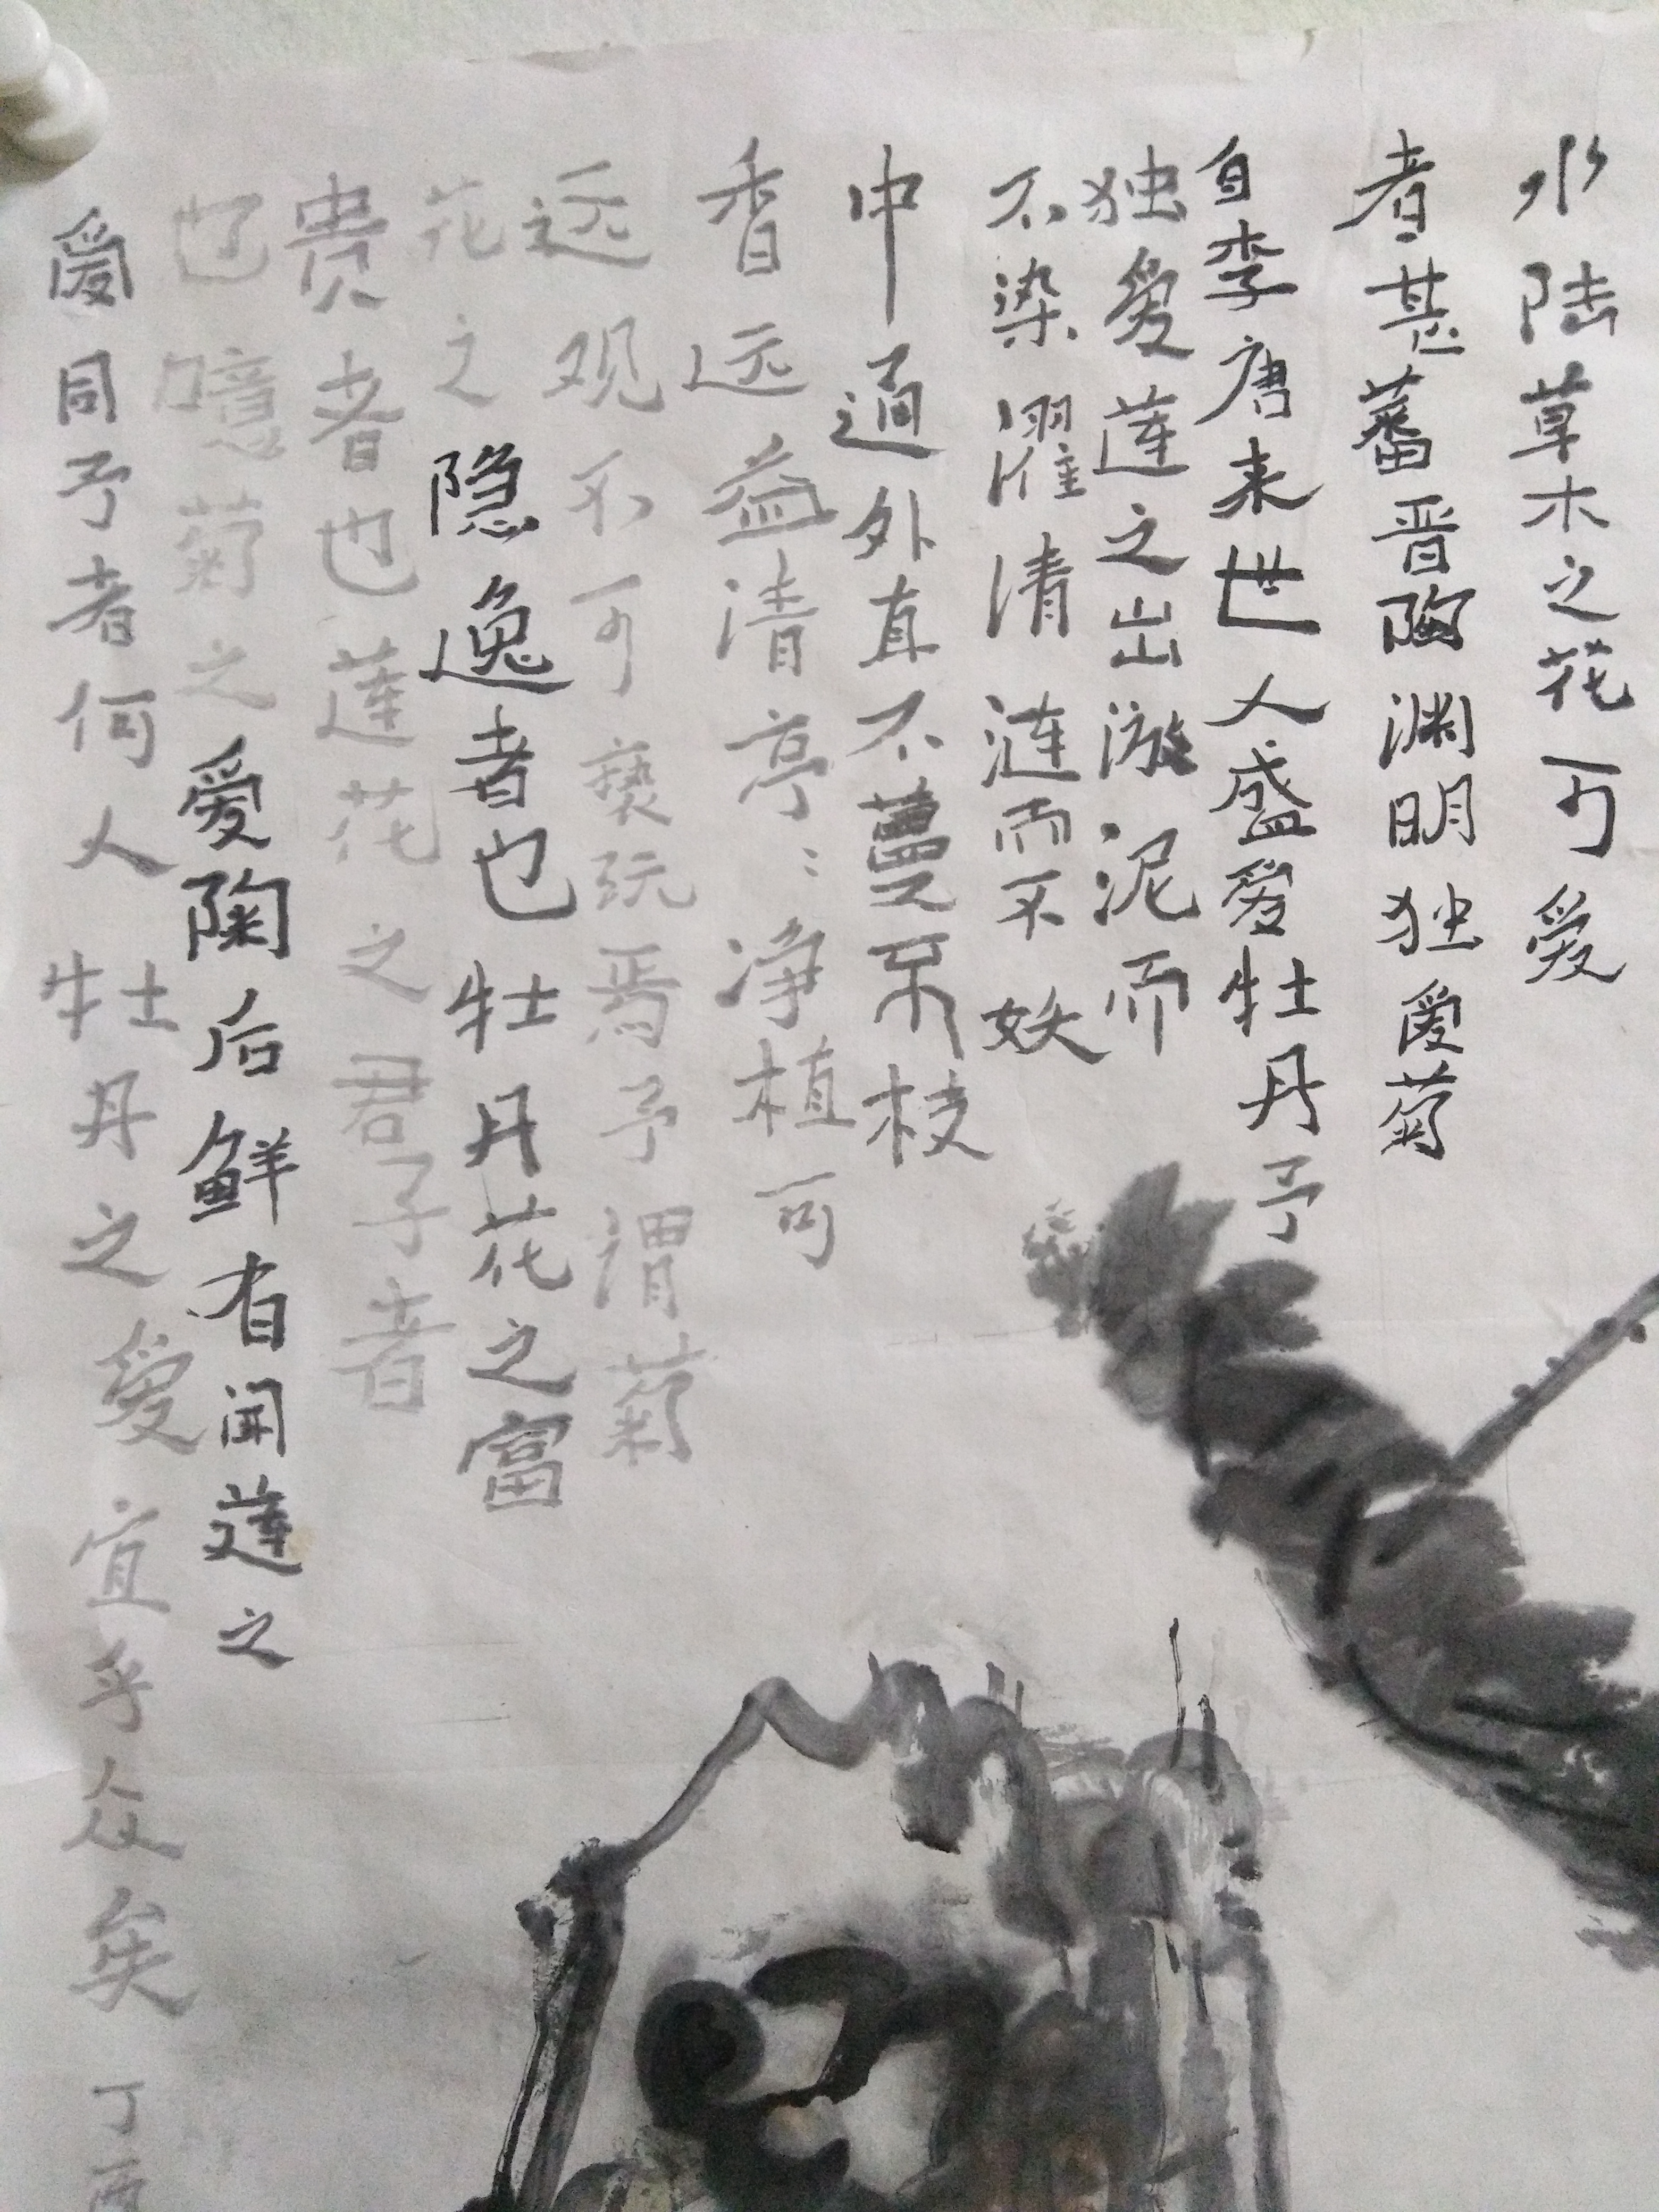 水陆草木之花可爱
者甚蕃晋陶渊明独爱菊
自李唐来世人盛爱牡丹予
独爱莲之出淤泥而
不染濯清涟而不妖
中通外直不蔓不枝
香远益清亭：净植可
远观不可亵玩焉予谓菊
花之隐逸者也牡丹花之富
贵者也莲花之君子者
也噫菊之爱陶后鲜有闻莲之
爱同予者何人牡丹之爱宜乎众矣丁酉